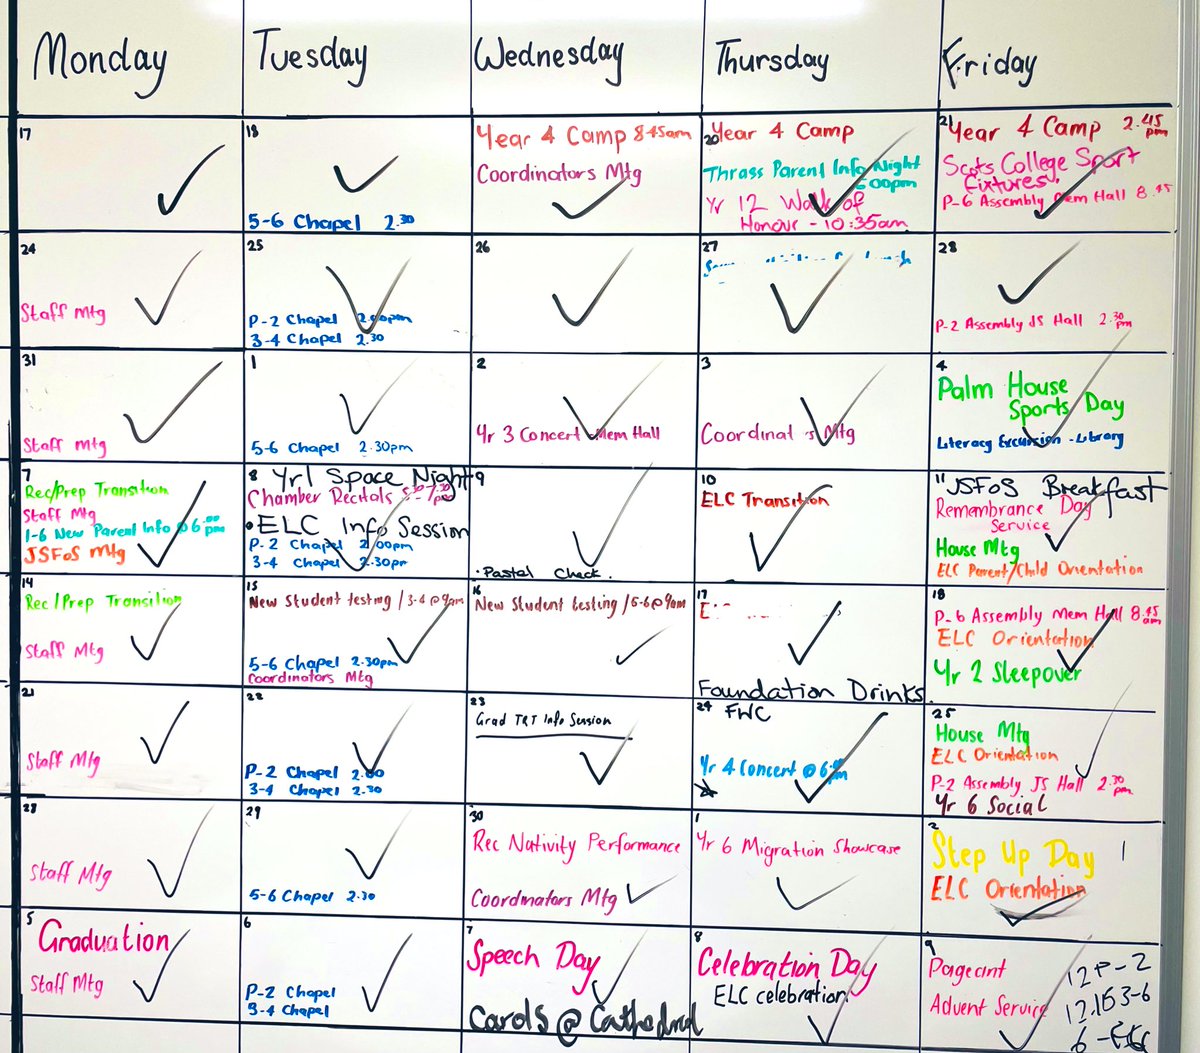 Monday
Tuesday
Wednesday
Thursday
Friday
17
18
5-6 Chapel 2.30
Year 4 Camp 8.45am
Coordinators Mtg
20 Year 4 Camp
Thrass Parent Info Night
6:00pm
Yr 12 Walk of
Honour - 10:35am
21 Year 4 Camp 2.45
pm
Scots College Sport
fixtures
P-6 Assembly Mem Hall 8.45
24
Staff Mtg
25
P-2 Chapel 2.00pm
3-4 Chapel 2.30
26
27
28
P-2 Assembly JS Hall 2.30
pm
31
Staff Mtg
1
5-6 Chapel 2.30pm
2
Yr 3 Concert Mem Hall
3
Coordinat s Mtg
4
Palm House
Sports Day
Literacy Excursion - Library
7
Rec/Prep Transition
Staff Mtg
1-6 New Parent Info @ 6.00
pm
JSFoS Mtg
8 Yr1 Space Night
Chamber Recitals
• ELC Info Session
P-2 Chapel 2.00pm
3-4 Chapel 2.30pm
9
• Pastel Check.
10
ELC Transition
11 JSFoS Breakfast
Remembrance Day
Service
House Mtg
ELC Parent/Child Orientation
14
Rec/Prep Transition
Staff Mtg
15
New Student testing / 3-4 @ 9am
5-6 Chapel 2.30pm
Coordinators Mtg
16
New Student testing / 5-6 @ 9am
17
E
Foundation Drinks
18
P-6 Assembly Mem Hall 8.45
am
ELC Orientation
Yr 2 Sleepover
21
Staff Mtg
22
P-2 Chapel 2.00
3-4 Chapel 2.30
23
Grad TRT Info Session
24 FWC
Yr 4 Concert @ 6
pm
25
House Mtg
ELC Orientation
P-2 Assembly JS Hall 2.30
pm
Yr 6 Social
28
Staff Mtg
29
5-6 Chapel 2.30
30
Rec Nativity Performance
Coordinators Mtg
1
Yr 6 Migration Showcase
2
Step Up Day
ELC Orientation
5
Graduation
Staff Mtg
6
P-2 Chapel
3-4 Chapel
7
Speech Day
Carols @ Cathedral
8
Celebration Day
ELC celebration
9
Pageant 12 P-2
Advent Service 12.15 3-6